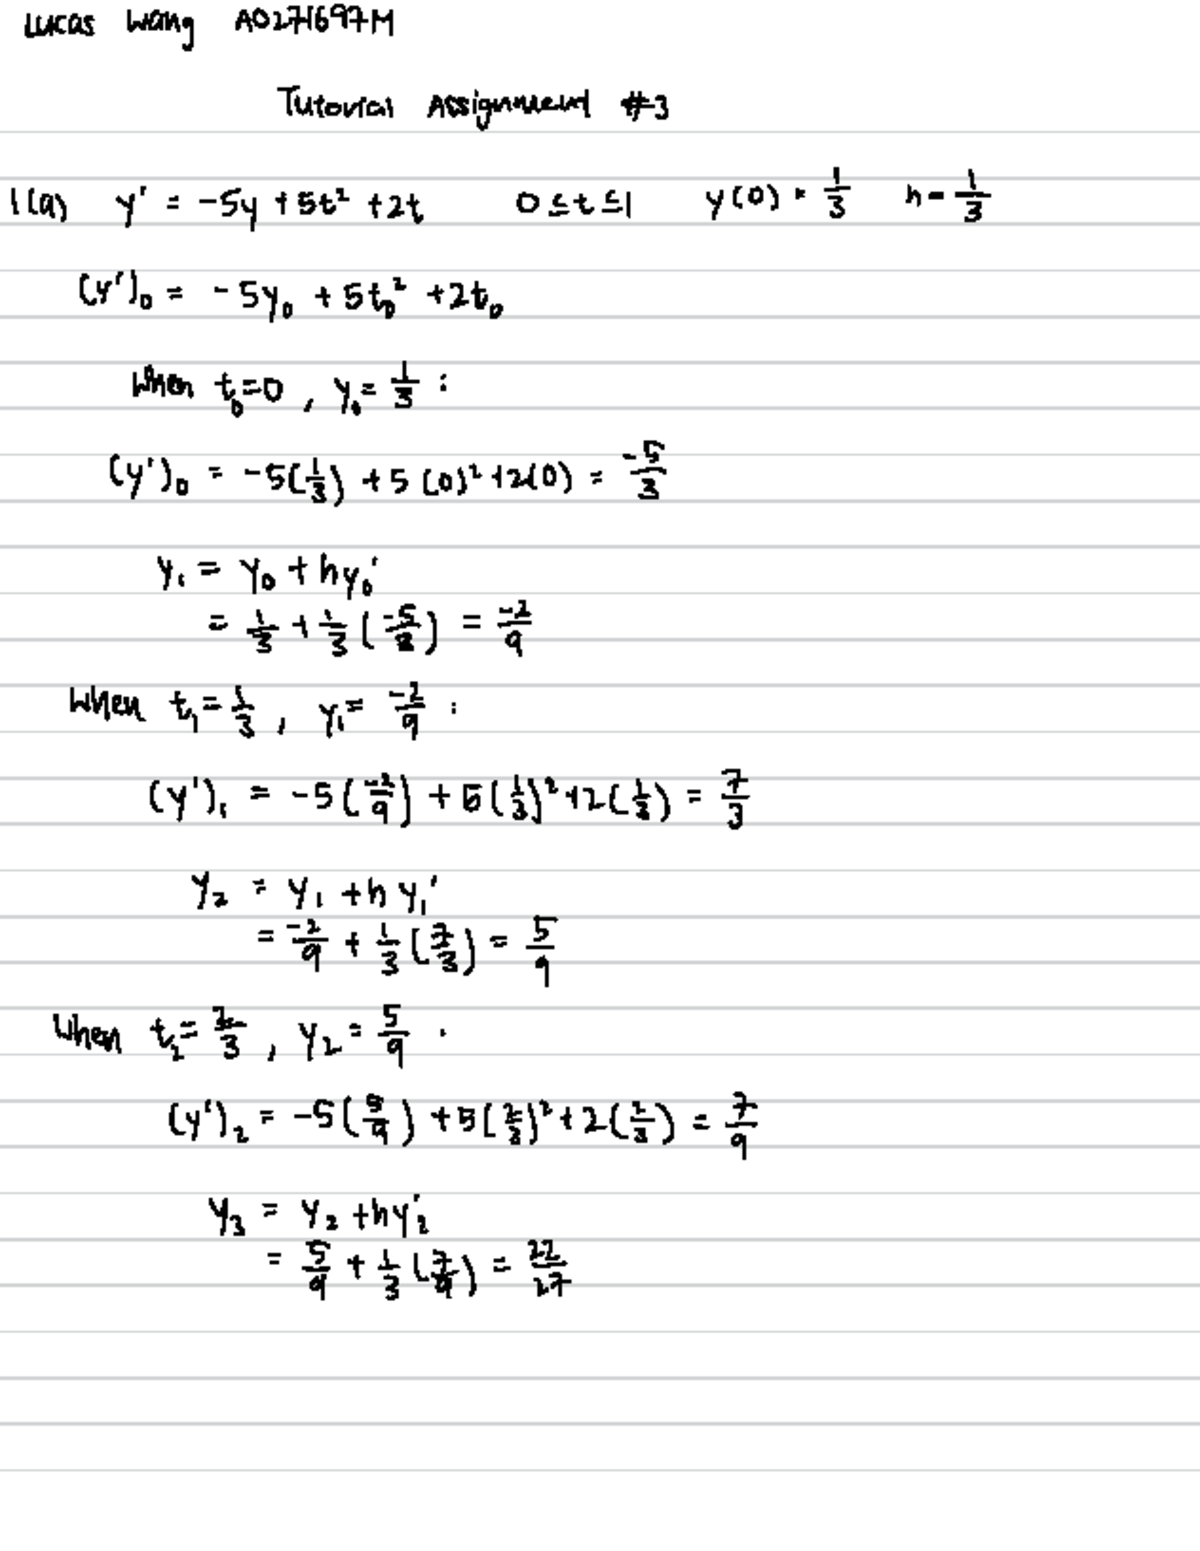 Lucas Wang A0271697M
Tutorial Assignment #3
1(a) y' = -5y + 5t² + 2t 0 ≤ t ≤ 1 y(0) = 1/3 h = 1/3
(y')₀ = -5y₀ + 5t₀² + 2t₀
When t₀=0 , y₀= 1/3 :
(y')₀ = -5(1/3) + 5(0)² + 2(0) = -5/3
y₁ = y₀ + hy₀'
= 1/3 + 1/3 (-5/3) = -2/9
When t₁ = 1/3 , y₁ = -2/9 :
(y')₁ = -5(-2/9) + 5(1/3)² + 2(1/3) = 7/3
y₂ = y₁ + h y₁'
= -2/9 + 1/3 (7/3) = 5/9
When t₂ = 2/3 , y₂ = 5/9 .
(y')₂ = -5(5/9) + 5(2/3)² + 2(2/3) = 7/9
y₃ = y₂ + hy₂'
= 5/9 + 1/3 (7/9) = 22/27